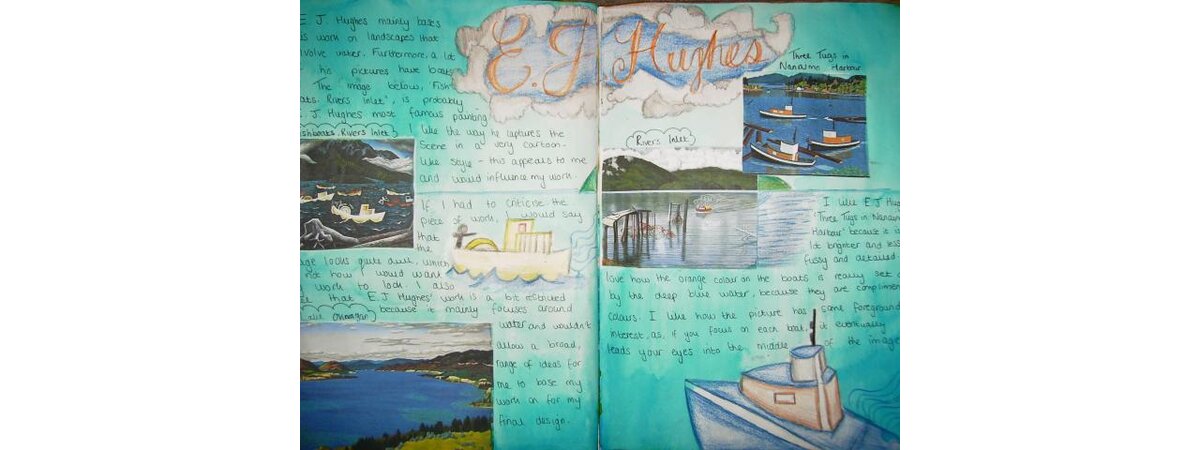 E.J Hughes
E J Hughes mainly bases
work on landscapes that
water. Furthermore, a lot
his pictures have boats
The image below, 'Fish
ats. Rivers Inlet', is probably
E. J. Hughes most famous painting
Fishboats, Rivers Inlet
I like the way he captures the
scene in a very cartoon-
like style - this appeals to me
and would influence my work.
If I had to criticise the
piece of work, I would say
that
the
looks quite dull, which
not how I would want
work to look. I also
that E.J Hughes' work is a bit restricted
because it mainly focuses around
water and wouldn't
allow a broad,
range of ideas for
me to base my
work on for my
final design.
Okanagan
Three Tugs in
Nanaimo Harbour
Rivers Inlet
I like E J
'Three Tugs in
Harbour' because it is
lot brighter and less
fussy and detailed
love how the orange colour on the boats is really set
by the deep blue water, because they are
colours. I like how the picture has some foreground
interest, as, if you focus on each boat, it eventually
leads your eyes into the middle of the image